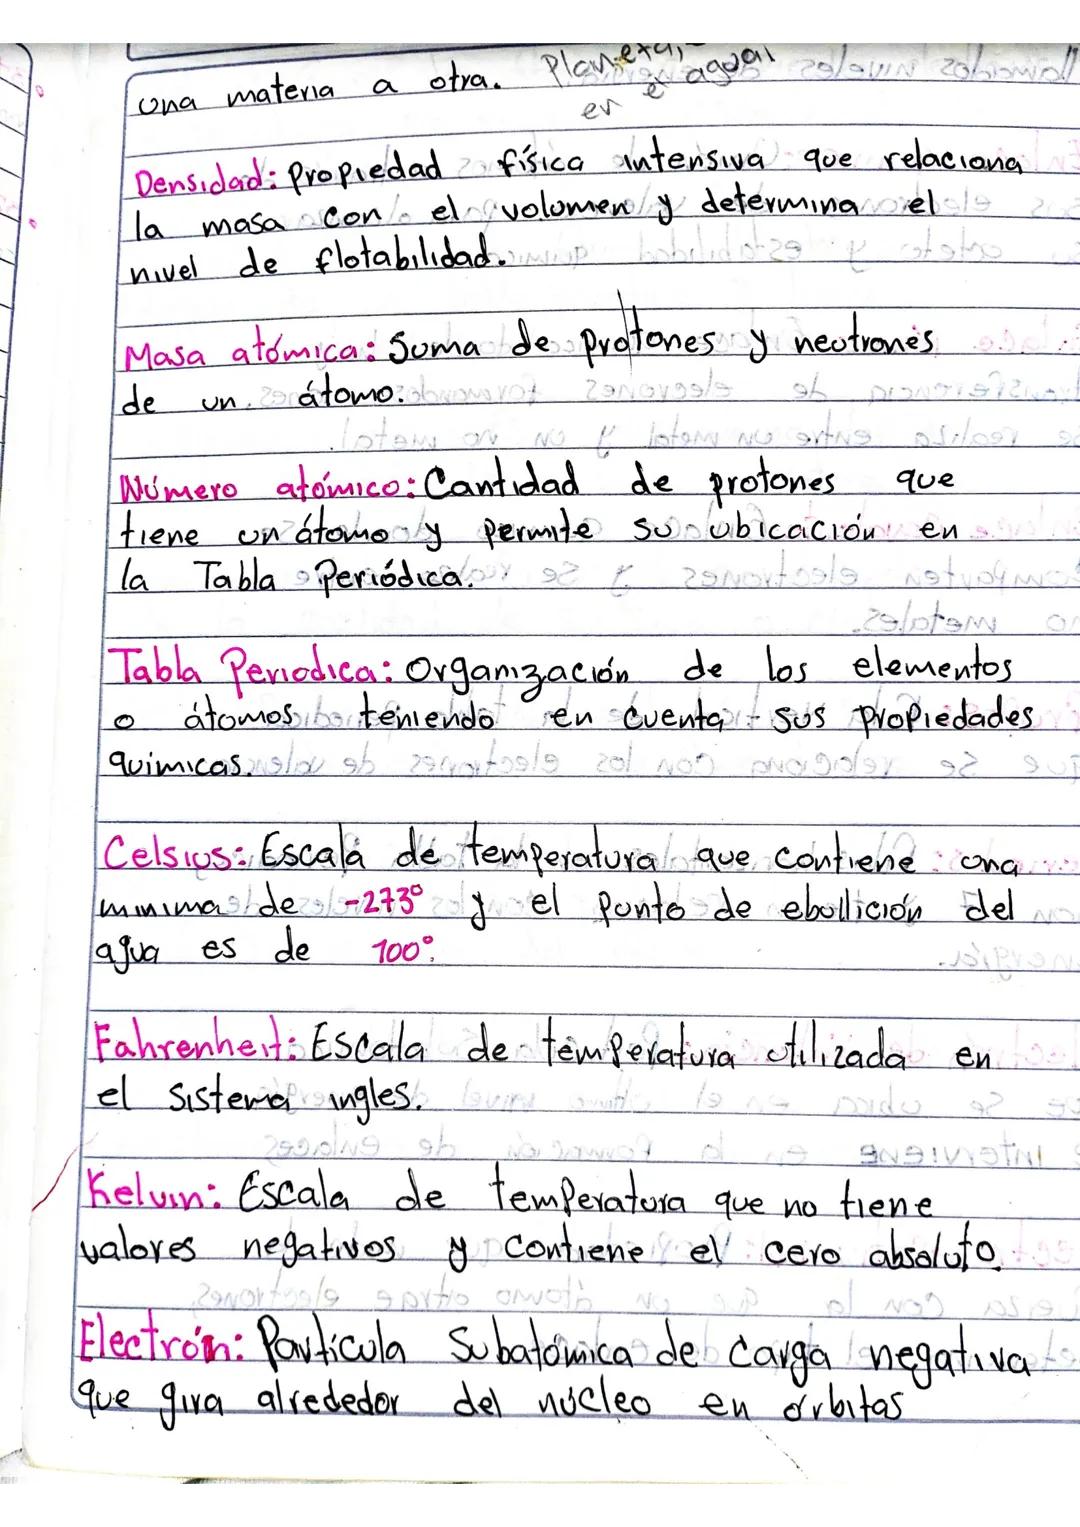 una materia a otra.
Densidad: Propiedad física intensiva que relaciona
la masa con el volumen y determina el
nivel de flotabilidad.
Masa atómica: Suma de protones y neutrones
de un átomo.
Número atómico: Cantidad de protones que
tiene un átomo y permite su ubicación en
la Tabla Periódica.
Tabla Periodica: Organización de los elementos
o átomos teniendo en cuenta sus propiedades
quimicas.
Celsius: Escala de temperatura que contiene una
minima de -273° y el punto de ebullición del
agua es de 100°.
Fahrenheit: Escala de temperatura utilizada en
el sistema ingles.
Kelvin: Escala de temperatura que no tiene
valores negativos y contiene el cero absoluto.
Electrón: Partícula Subatómica de carga negativa
que gira alrededor del núcleo en órbitas